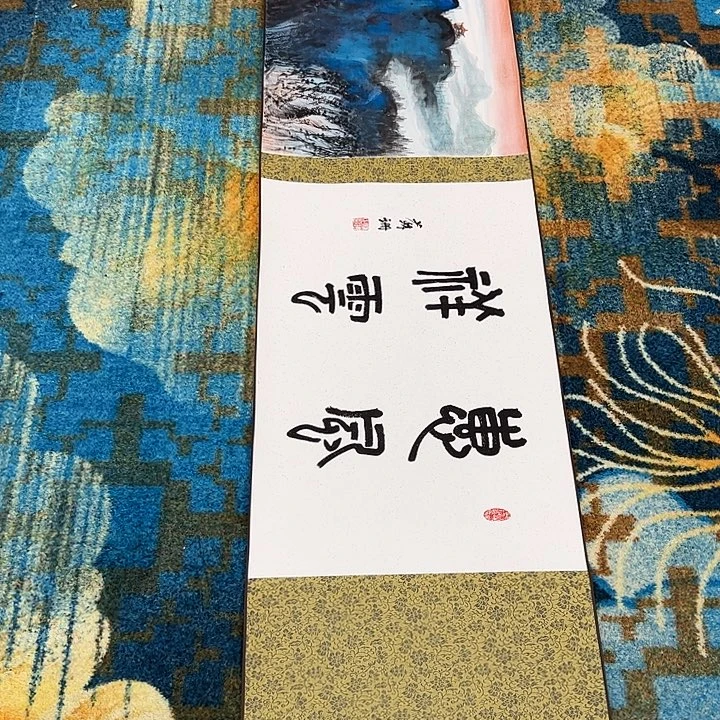 惠風
祥雲